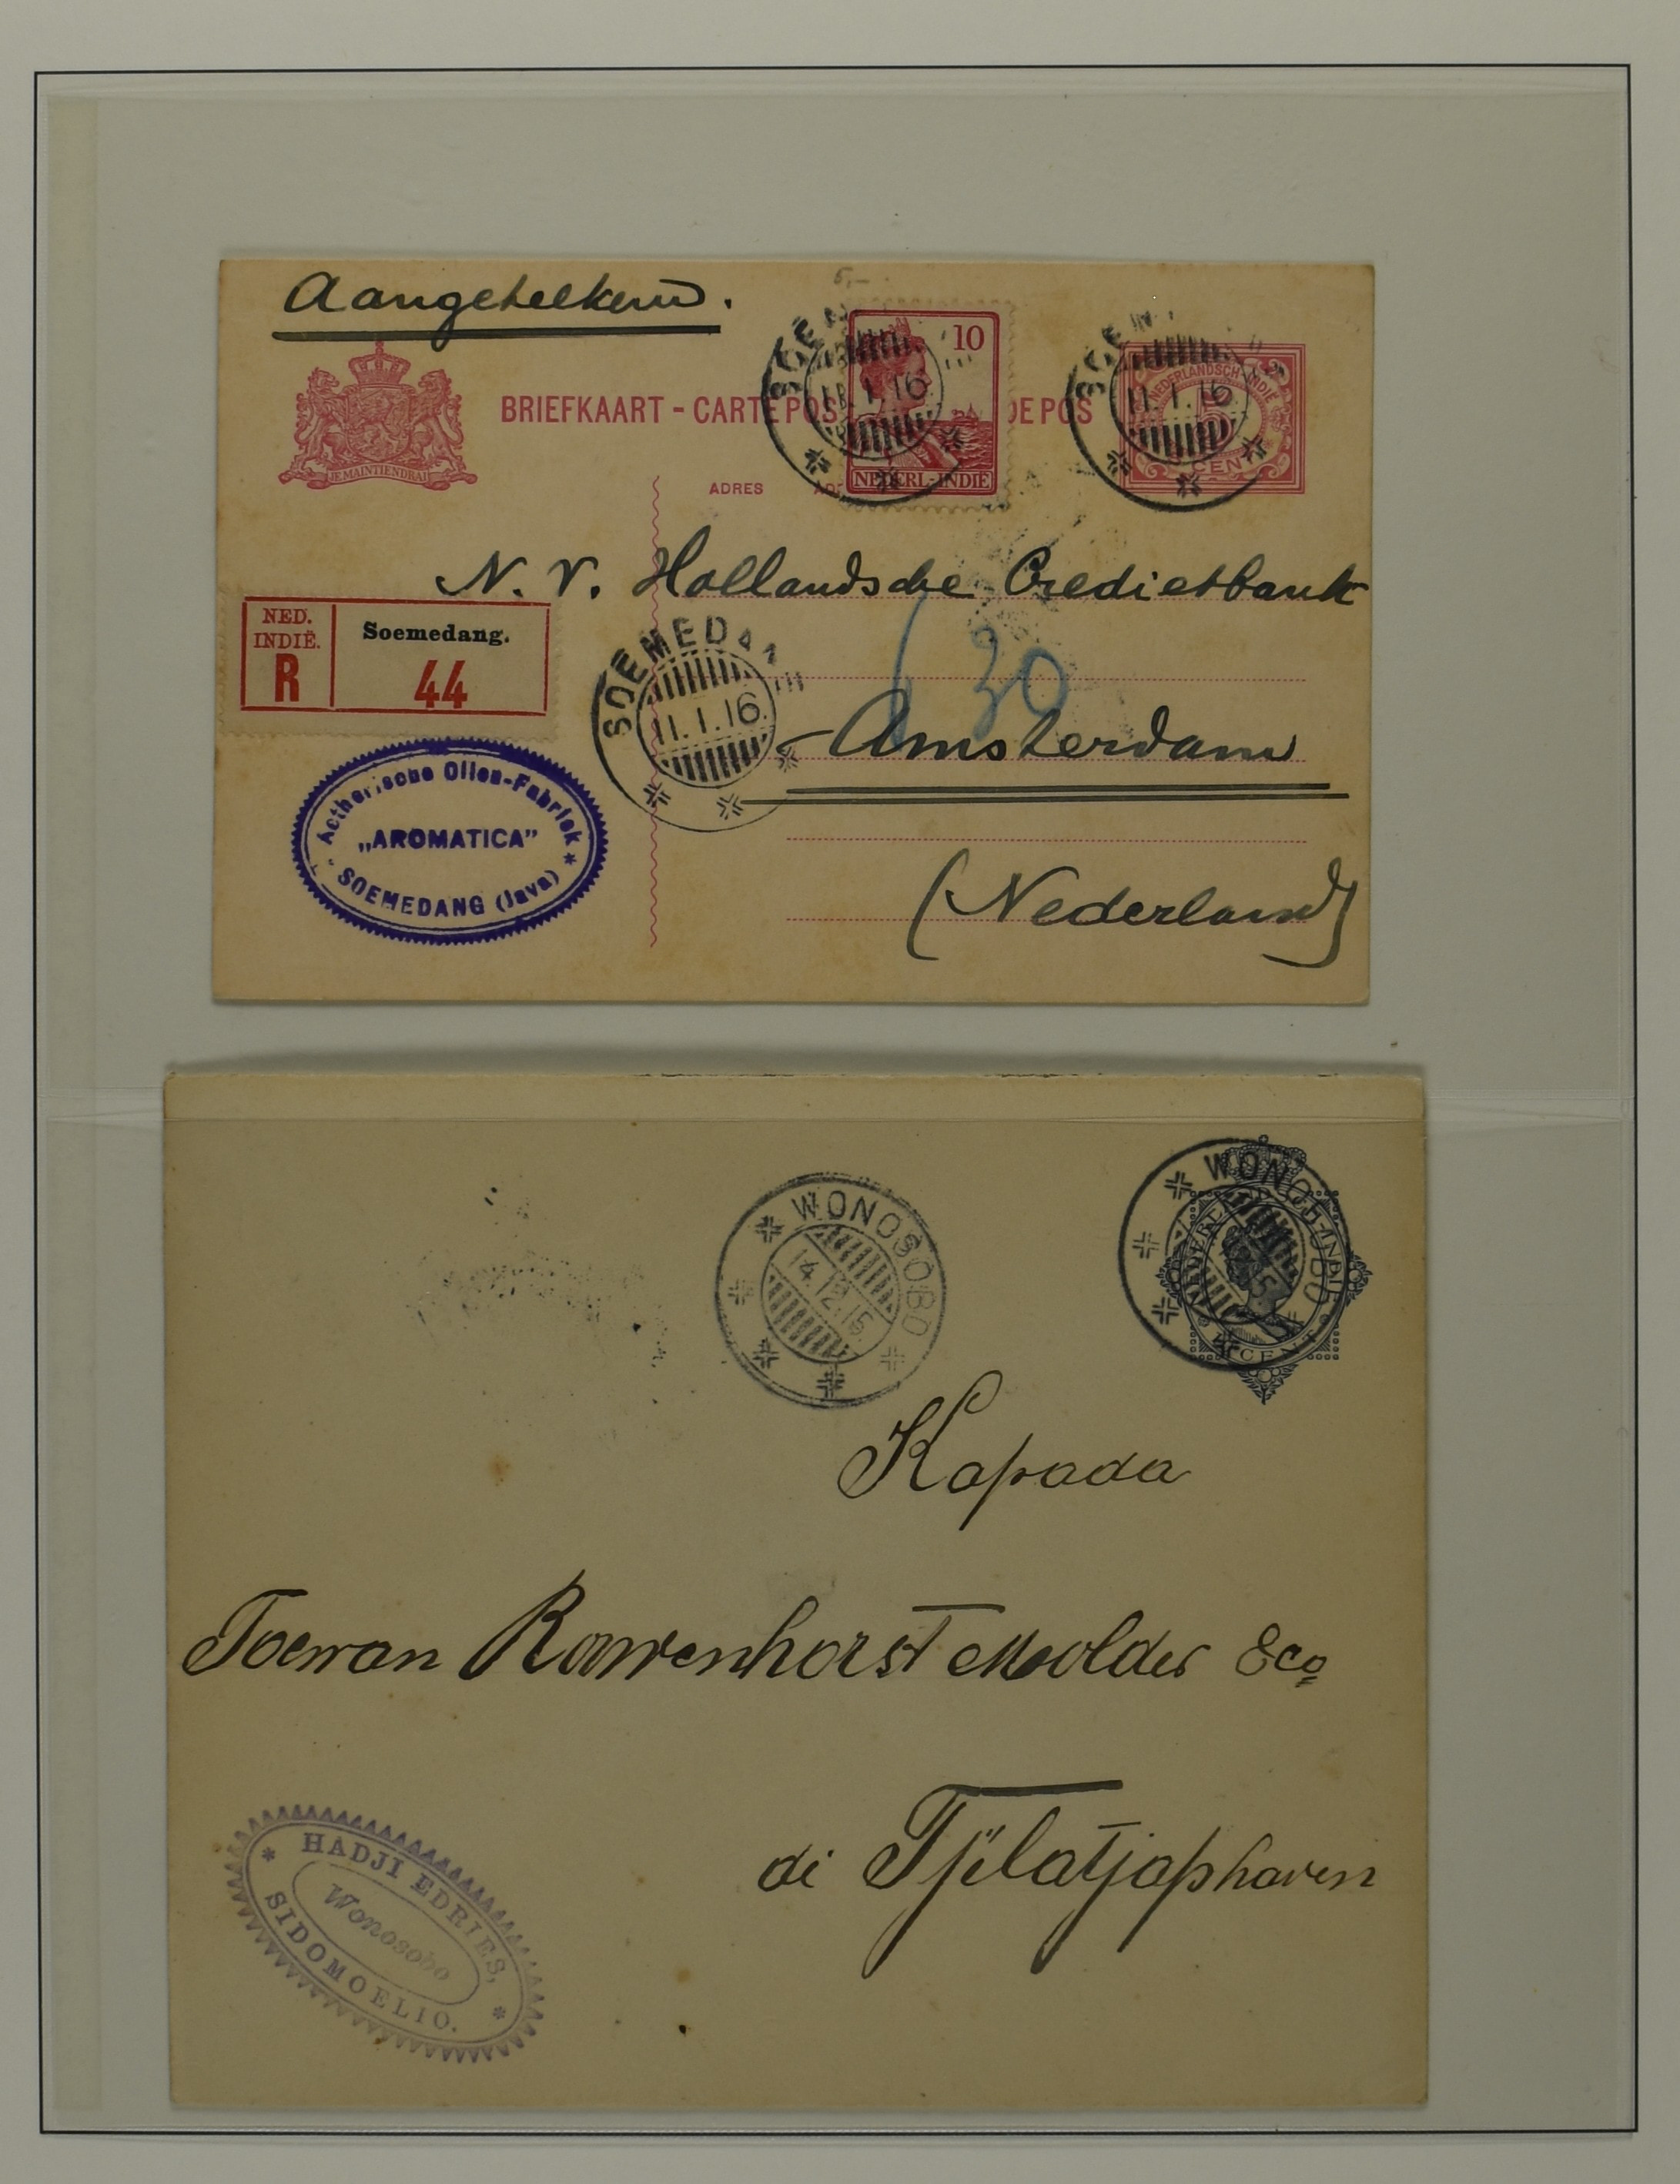 Aangeteekend.
5,-
BRIEFKAART - CARTE POS DE POS
JE MAINTIENDRAI
ADRES
10
NEDERL-INDIE
SOEM
11.1.16
NEDERLANDSCH-INDIE
5
CENT
SOEM
11.1.16
N.V. Hollandsche Credietbank
NED.
INDIË.
R
Soemedang.
44
SOEMEDAN
11.1.16
630
Amsterdam
Aetherische Oliën-Fabriek
„AROMATICA”
SOEMEDANG (Java)
(Nederland)
WONOSOBO
14.12.15
WONOSOBO
NEDERL-INDIE
CENT
Kapada
Toewan Rouwenhorst Moolder &co
di Tjilatjaphaven
HADJI EDRIES,
Wonosobo
SIDOMOELIO.